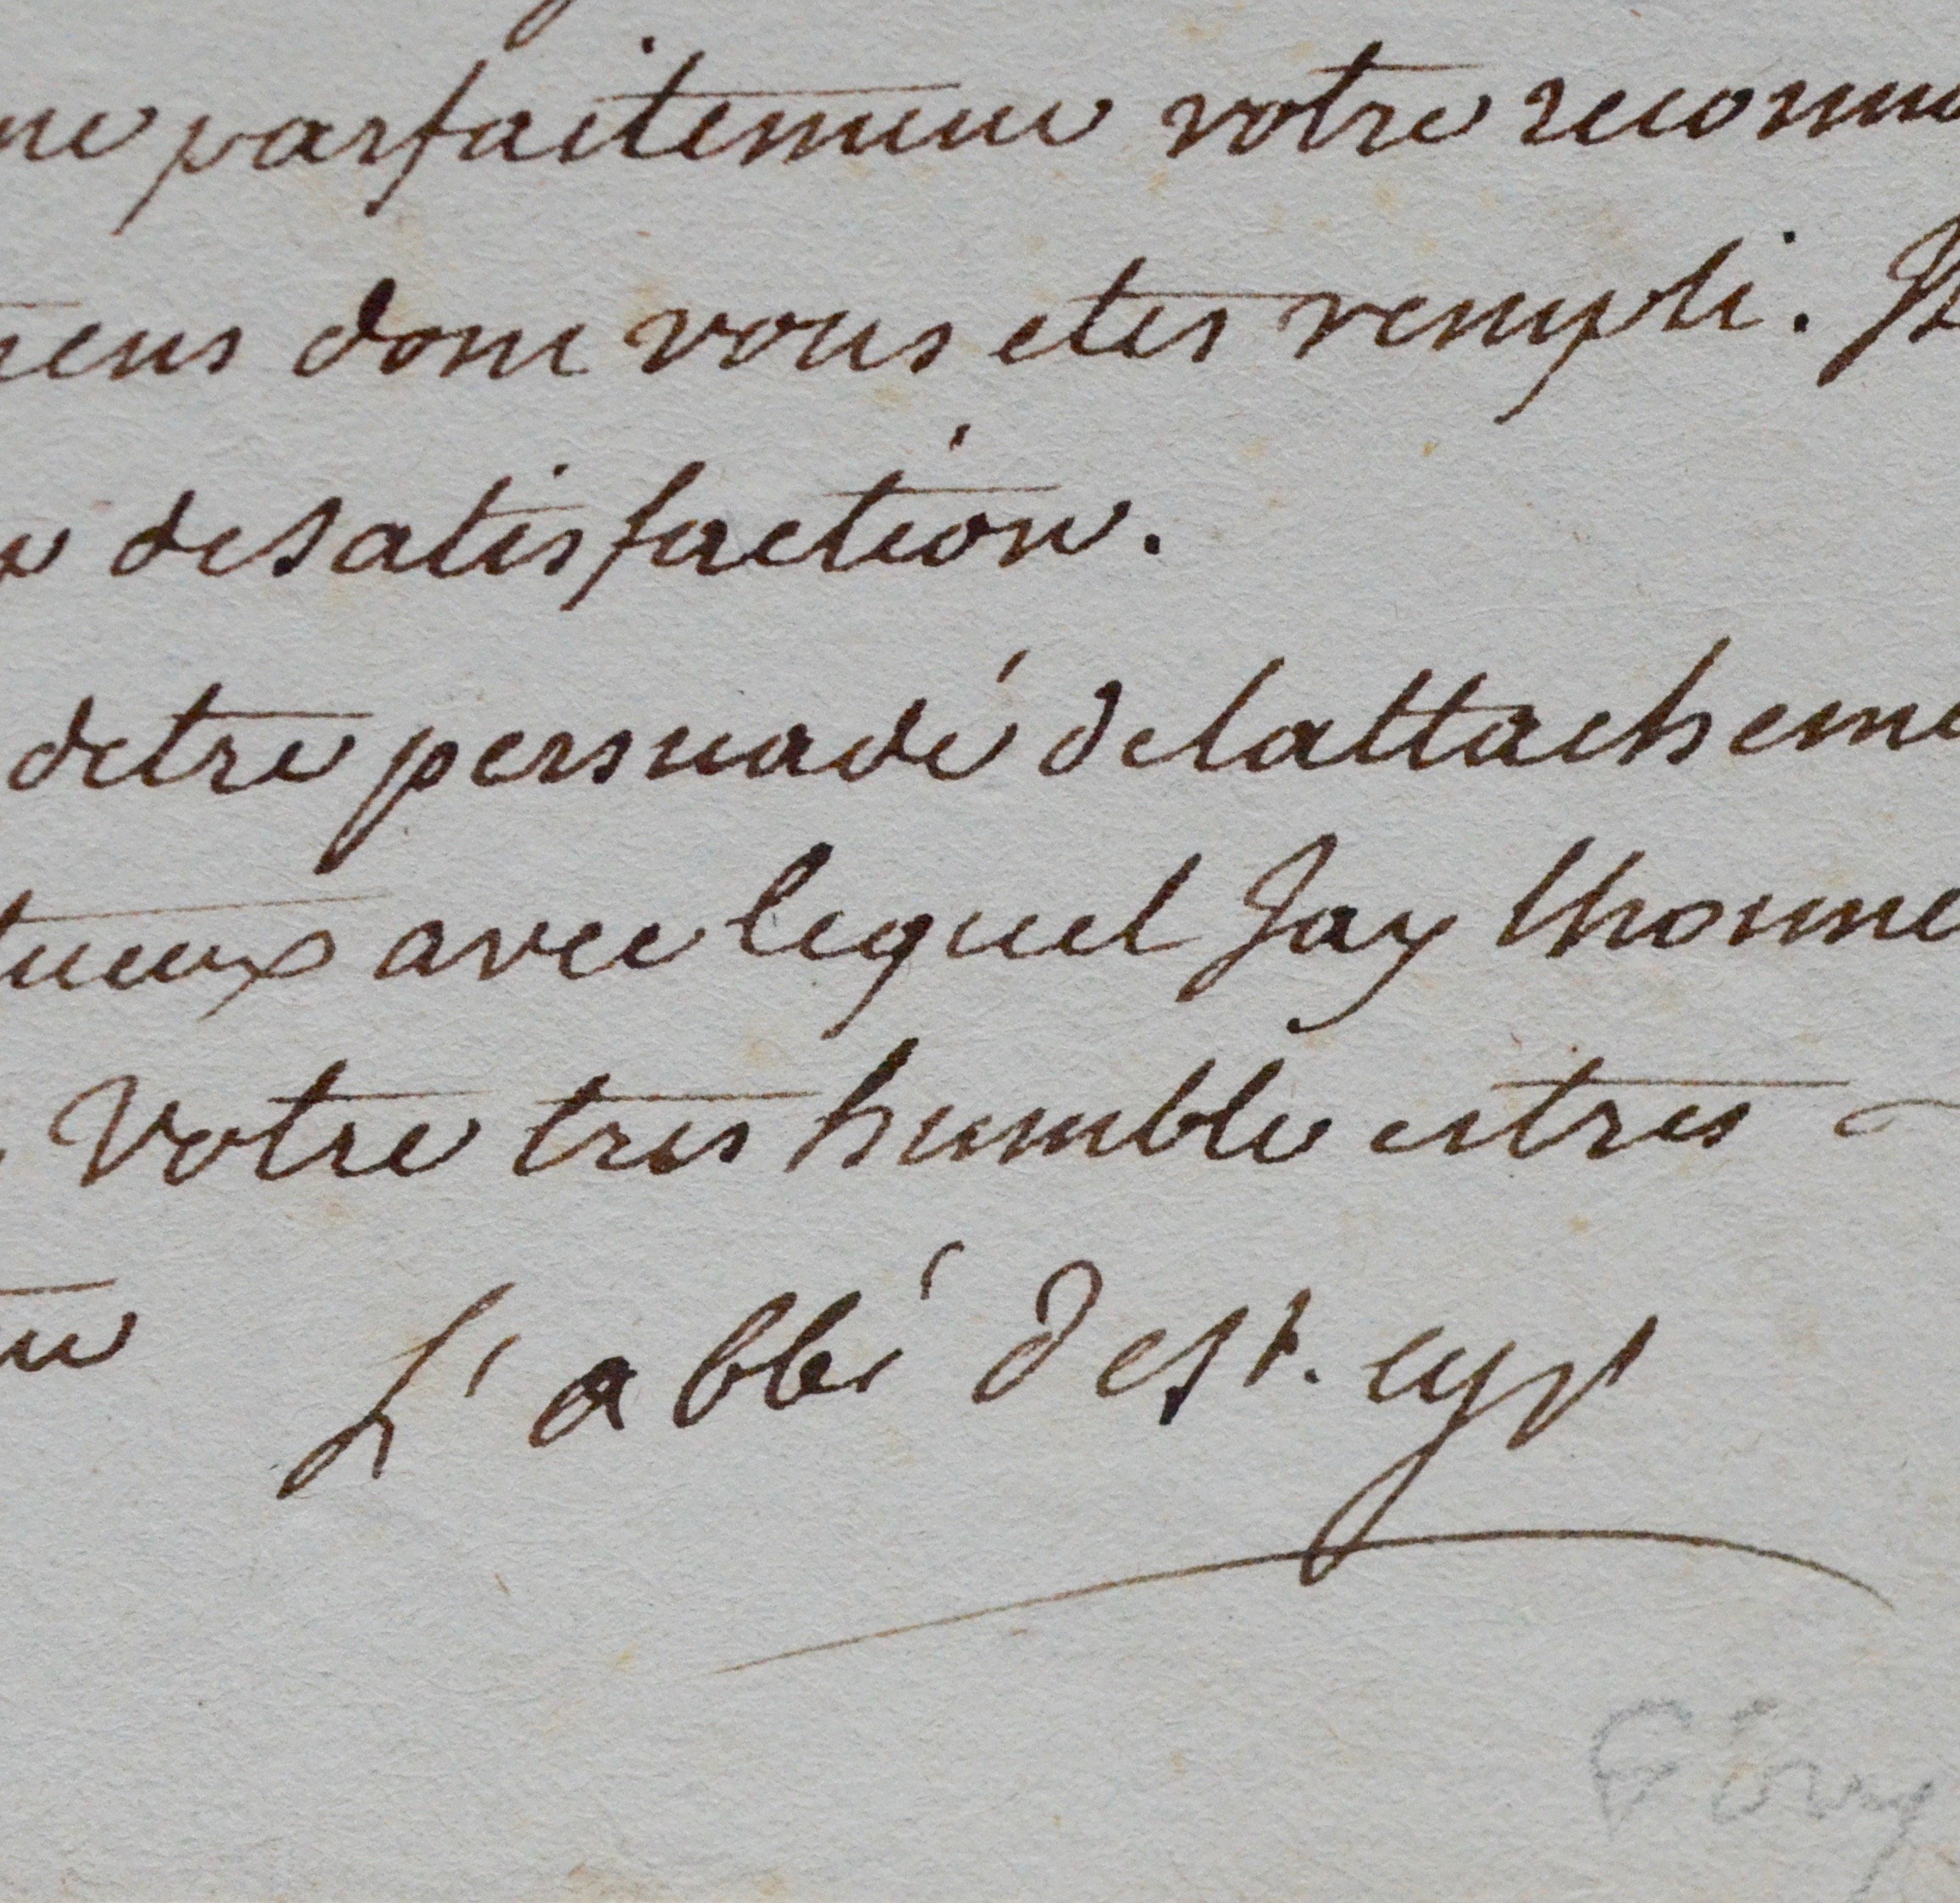 me parfaitement votre reconno
mens dont vous etes rempli. Je
x desatisfaction.
detre persuadé delattacheme
tueux avec lequel Jay lhonne
Votre tres humble et tres o
L'abbé de st. cyr